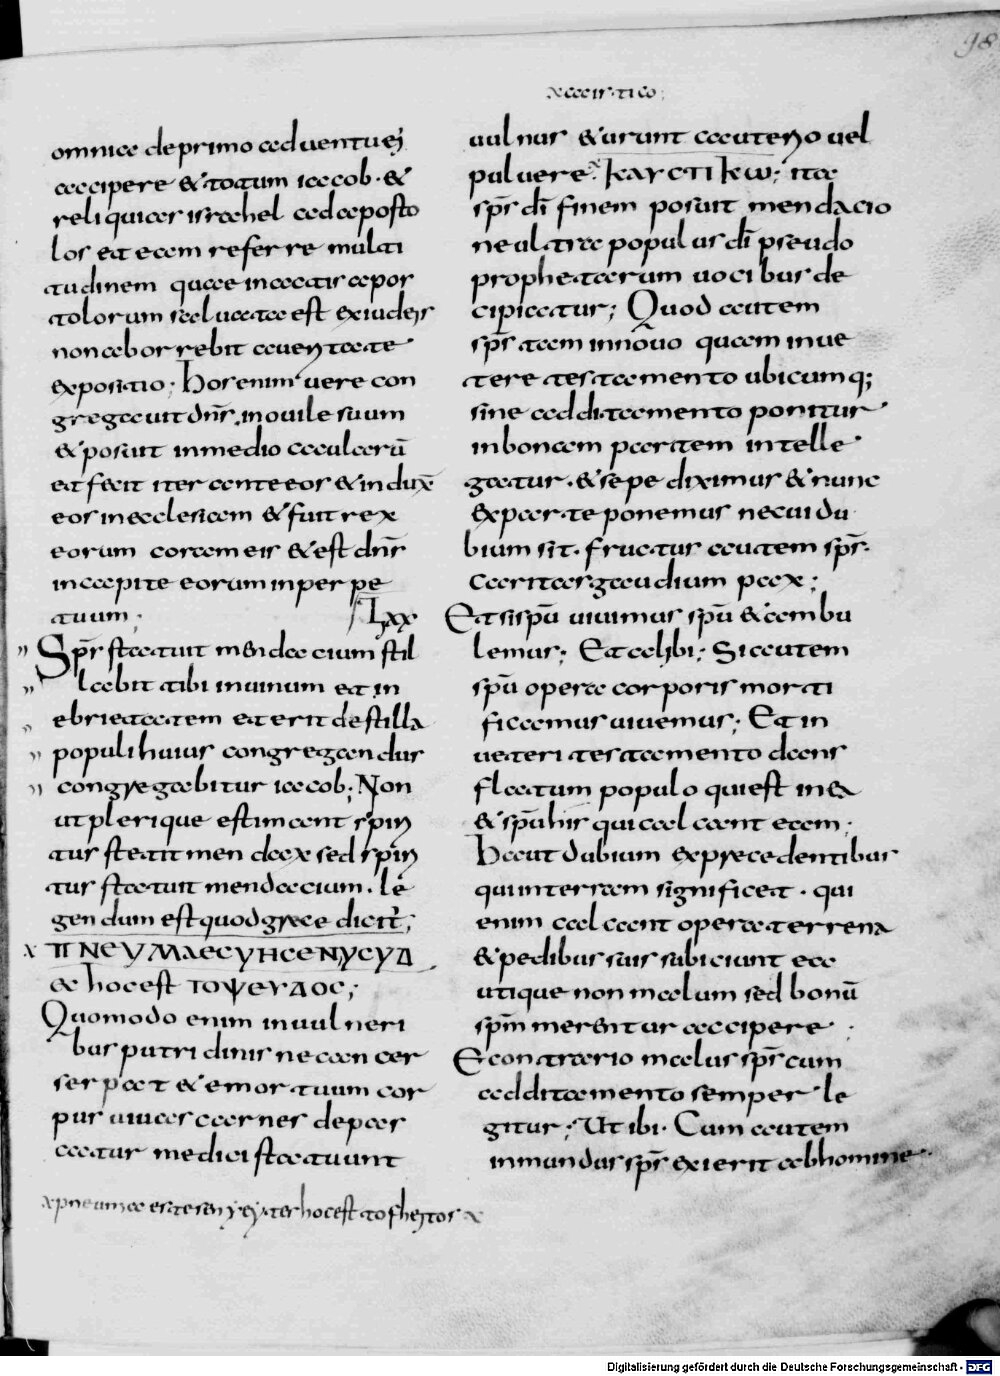 98
xccirtico;
omnia de primo aduentu ei
accipere & totum iacob · &
reliquias israhel ad aposto
los et eam referre multi
tudinem quae in actis apos
tolorum saluata est ex iudeis
non aborrebit a ueritate
expositio; Hos enim uere con
gregauit dn̄s in ouile suum
& posuit in medio caularū
et fecit iter ante eos & indux̄
eos in ecclesiam & fuit rex
eorum coram eis & est dn̄s
in capite eorum in perpe
tuum; Lxx
Sp̄s statuit mendacium stil
labit tibi in uinum et in
ebrietatem et erit de stilla
populi huius congregandus
congregabitur iacob; Non
ut plerique estimant spiri
tur stetit mendax sed spiri
tus statuit mendacium · le
gendum est quod grece dicit̄;
x ΠΝΕΥΜΑ ΕСΥΗСΕΝ ΥСΥΔ
& hoc est ΤΟΨΕΥΔΟС;
Quomodo enim in uulneri
bus putridinis ne cancer
serpat & emortuum cor
pus uiuas carnes depas
catur medici statuunt
x pneuma estesen yeyster hoc est to sheytos x
uulnus & urunt cauterio uel
puluere x ΚΑΥСΤΙΚω; ita
sp̄s dī finem posuit mendacio
ne ultra populus dī pseudo
prophetarum uocibus de
cipiatur; Quod autem
sp̄s tam in nouo quam in ue
tere testamento ubicumq;
sine additamento ponitur
in bonam partem intelle
gatur · & sepe diximus & nunc
ex parte ponemus ne cui du
bium sit · fructus autem sp̄s ·
Caritas gaudium pax;
Et si sp̄u uiuimus sp̄u & ambu
lemus; Et alibi; Si autem
sp̄u opera corporis morti
ficamus uiuemus; Et in
ueteri testamento dans
flatum populo qui est in ea
& sp̄u his qui calcant eam;
Haut dubium ex precedentibus
qui in terram significat · qui
enim calcant opera terrena
& pedibus suis subiciunt ea
utique non malum sed bonū
sp̄m merentur accipere ·
E contrario malus sp̄s cum
additamento semper le
gitur; Ut ibi · Cum autem
inmundus sp̄s exierit ab homine ·
Digitalisierung gefördert durch die Deutsche Forschungsgemeinschaft - DFG